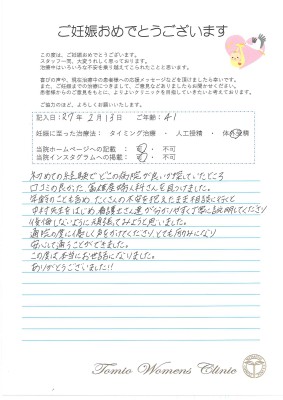 ご妊娠おめでとうございます
この度は、ご妊娠おめでとうございます。
スタッフ一同、大変うれしく思っております。
治療中はいろいろな不安を乗り越えてこられたことと思います。
喜びの声や、現在治療中の患者様への応援メッセージなどを頂けましたら幸いです。
また、ご妊娠までの治療につきまして、ご意見などありましたらお聞かせください。
患者様からのご意見をもとに、よりよいクリニックを目指していきたいと考えております。
ご協力のほど、よろしくお願いいたします。
記入日：R7年 2月13日 ご年齢：41
妊娠に至った治療法： タイミング治療 ・ 人工授精 ・ 体外受精
当院ホームページへの掲載： 可 ・ 不可
当院インスタグラムへの掲載： 可 ・ 不可
初めての経験でどこの病院が良いか悩んでいたところ
口コミの良かった富塚産婦人科さんを見つけました。
年齢のことも含め たくさんの不安を抱えたまま相談に行くと
中村先生をはじめ看護士さん達が分かりやすく丁寧に説明してくださり
後悔しないように頑張ってみようと思いました。
通院の度に優しく声をかけてくださり とても励みになり
安心して通うことができました。
この度は本当にお世話になりました。
ありがとうございました!!
Tomio Womens Clinic